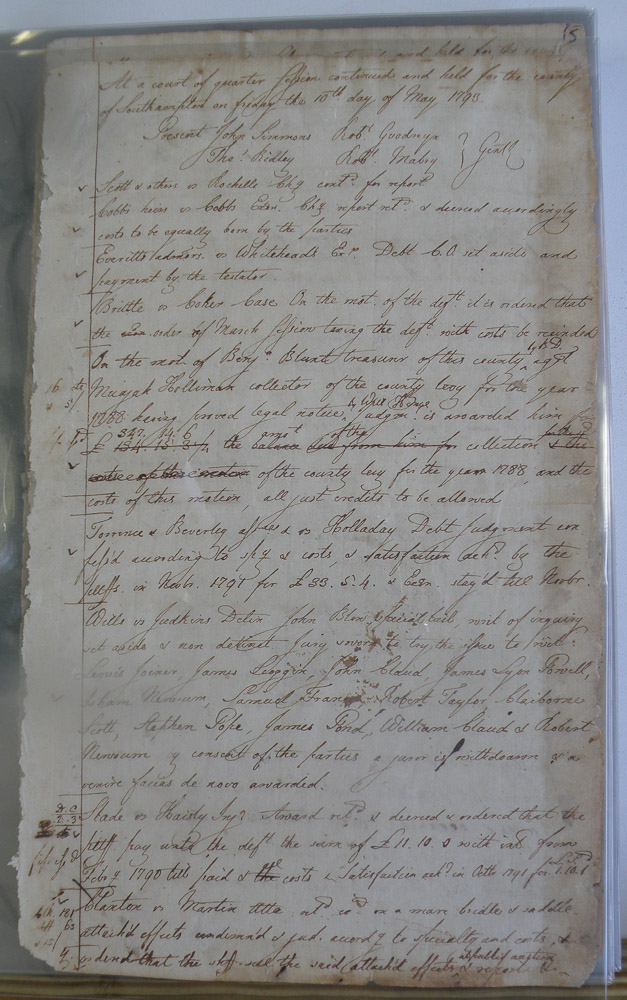 15
and held for the county
At a court of quarter Session continued and held for the county
of Southampton on friday the 10th day of May 1793
Present John Simmons Robt Goodwyn
Thos Ridley Robt Mabry } Gentn
Scott & others vs Rochelle Chy contd for report
Cobbs heirs vs Cobbs Exrs. Chy report retd & decreed accordingly
costs to be equally born by the parties
Everitts admors. vs Whiteheads Exr. Debt C.O set aside and
payment by the testator.
Brittle vs Coker Case On the mot. of the deft it is ordered that
the order of March Session taxing the deft with costs be recinded
On the mot. of Benja Blunt treasurer of this county agst
Micajah Holliman collector of the county levy for the year
1788 having proved legal notice, Judgmt is awarded him for
£ the amot of the collection
of the county levy for the year 1788, and the
costs of this motion, all just credits to be allowed
Torrence & Beverley assnee vs Holladay Debt Judgment con
fess'd according to spy & costs, & satisfaction ackd by the
pltffs. in Novbr. 1791 for £33.5.4. & Exon. stay'd till Novbr.
Wills vs Judkins Detin John Blow Special bail, writ of inquiry
set aside & non detinet Jury sworn to try the issue to wit
Lewis Joiner, James Scoggin, John Claud, James Lyon Powell,
Newsum, Samuel Francis, Robert Taylor, Claiborne
Scott, Stephen Pope, James Pond, William Claud & Robert
Newsum by consent of the parties a juror is withdrawn & a
venire facias de novo awarded.
Slade vs Haisty Inj: Award retd & decreed & ordered that the
pltff pay unto the deft the sum of £11.10.0 with int from
Feby 1790 till paid & costs & Satisfaction ackd in Octr 1791 for £1.10.1
Clanton vs Martin attat. retd exd on a mare bridle & saddle
attach'd effects condemn'd & jud. accordg to specialty and costs, &
ordered that the shff sell the said attach'd effects at publick auction & report &c.